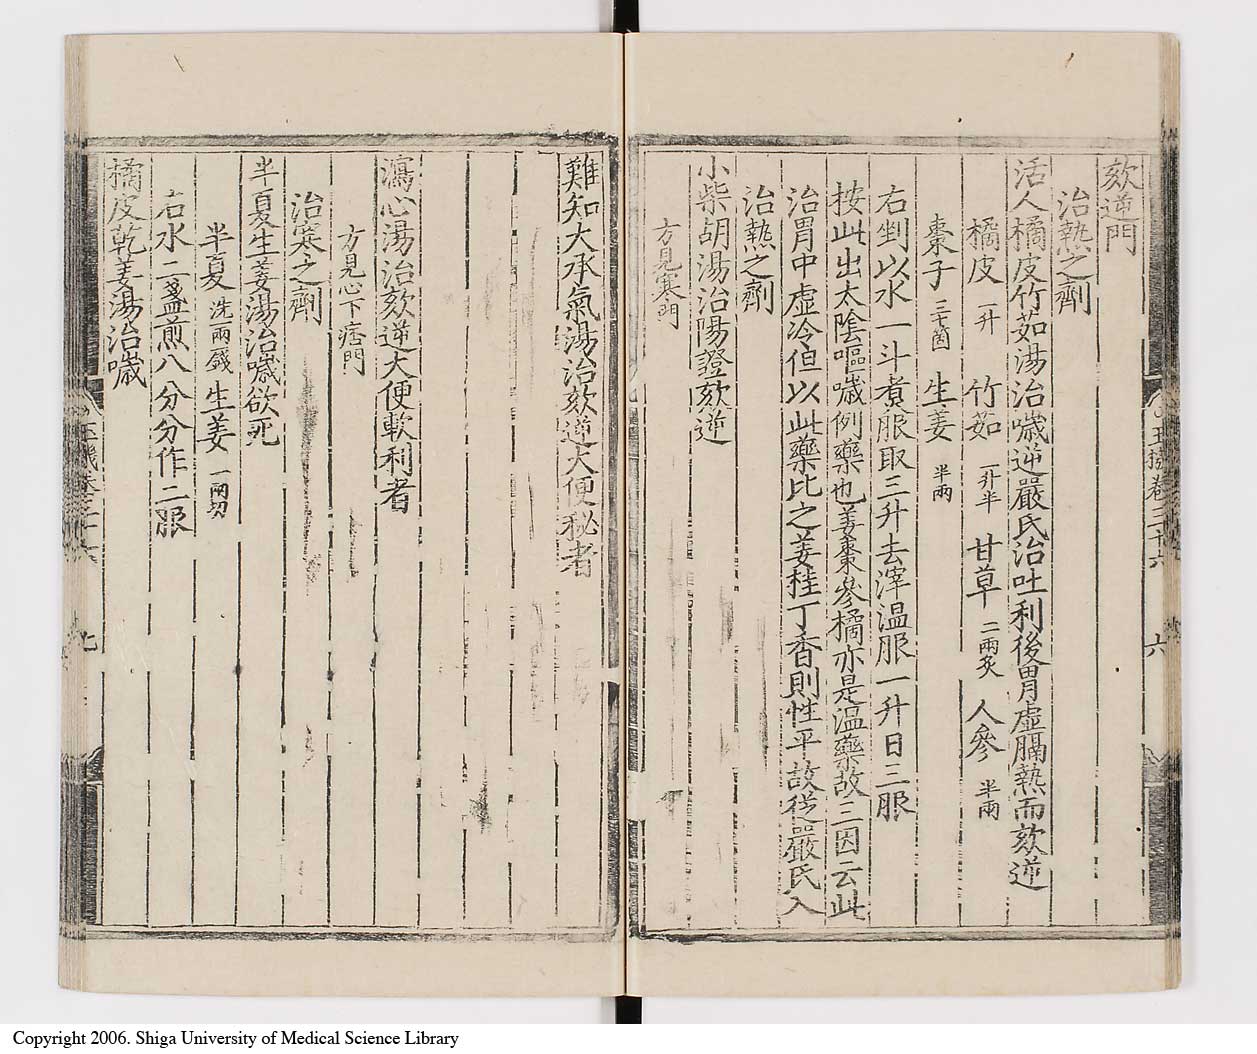 欬逆門
治熱之劑
活人橘皮竹茹湯治噦逆嚴氏治吐利後胃虛膈熱而欬逆
橘皮一升 竹茹一升半 甘草二兩炙 人參半兩
棗子三十箇 生姜半兩
右剉以水一斗煮服取三升去滓溫服一升日三服
按此出太陰嘔噦例藥也姜棗參橘亦是溫藥故三因云此
治胃中虛冷但以此藥比之姜桂丁香則性平故從嚴氏入
治熱之劑
小柴胡湯治陽證欬逆
方見寒門
難知大承氣湯治欬逆大便秘者
瀉心湯治欬逆大便軟利者
方見心下痞門
治寒之劑
半夏生姜湯治噦欲死
半夏洗兩錢 生姜一兩切
右水二盞煎八分分作二服
橘皮乾姜湯治噦
玉機卷三十六 六
玉機卷三十六 七
Copyright 2006. Shiga University of Medical Science Library